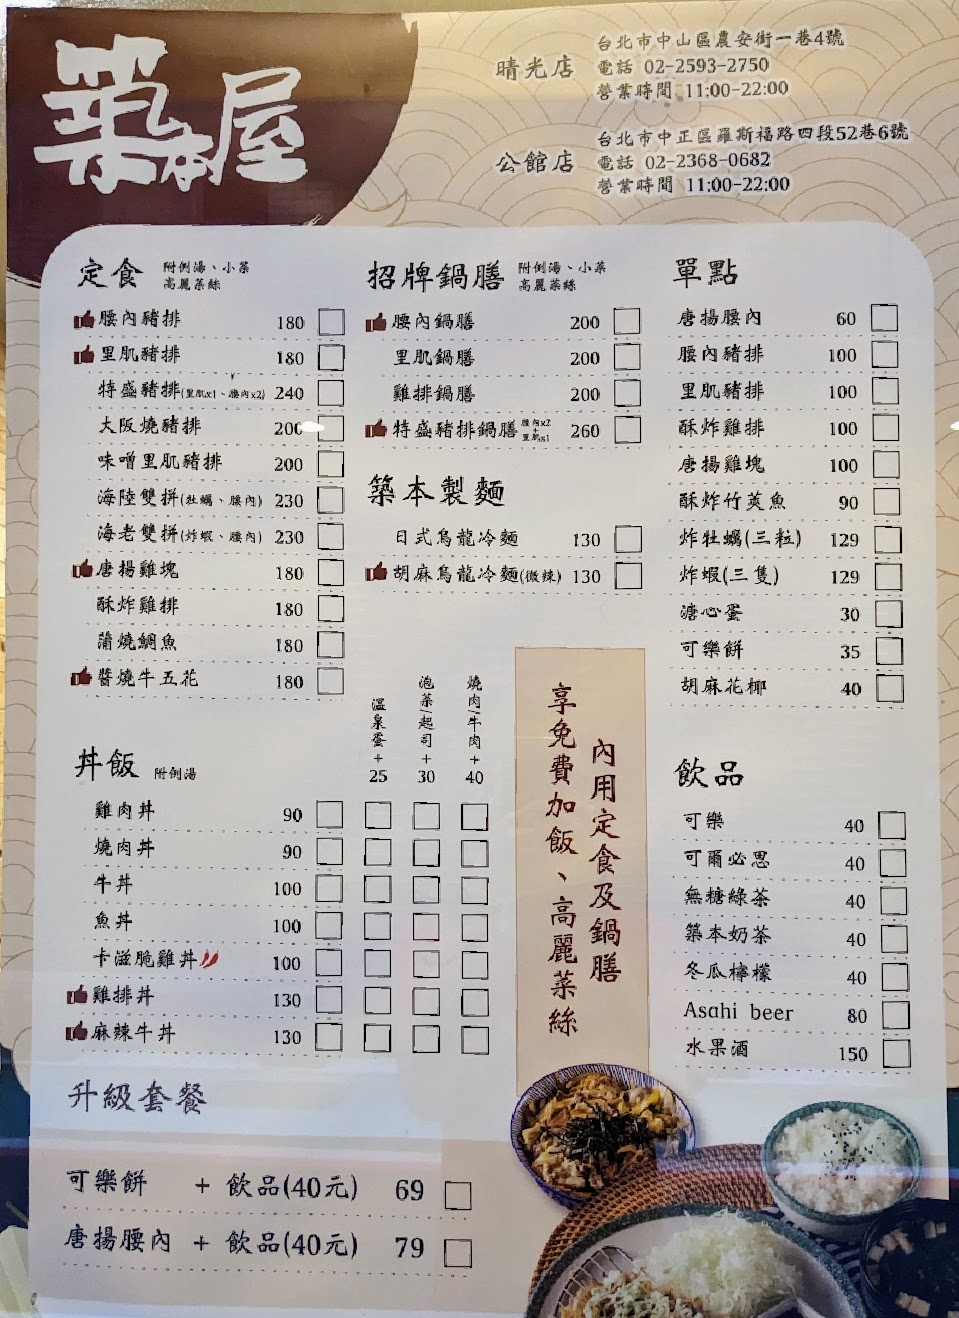 築本屋
晴光店
台北市中山區農安街一巷4號
電話 02-2593-2750
營業時間 11:00-22:00
公館店
台北市中正區羅斯福路四段52巷6號
電話 02-2368-0682
營業時間 11:00-22:00
定食 附例湯、小菜
高麗菜絲
腰內豬排 180
里肌豬排 180
特盛豬排(里肌x1、腰內x2) 240
大阪燒豬排 200
味噌里肌豬排 200
海陸雙拼(牡蠣、腰內) 230
海老雙拼(炸蝦、腰內) 230
唐揚雞塊 180
酥炸雞排 180
蒲燒鯛魚 180
醬燒牛五花 180
丼飯 附例湯
溫泉蛋+25
泡菜/起司+30
燒肉/牛肉+40
雞肉丼 90
燒肉丼 90
牛丼 100
魚丼 100
卡滋脆雞丼 100
雞排丼 130
麻辣牛丼 130
升級套餐
可樂餅 + 飲品(40元) 69
唐揚腰內 + 飲品(40元) 79
招牌鍋膳 附例湯、小菜
高麗菜絲
腰內鍋膳 200
里肌鍋膳 200
雞排鍋膳 200
特盛豬排鍋膳 腰內x2+里肌x1 260
築本製麵
日式烏龍冷麵 130
胡麻烏龍冷麵(微辣) 130
內用定食及鍋膳
享免費加飯、高麗菜絲
單點
唐揚腰內 60
腰內豬排 100
里肌豬排 100
酥炸雞排 100
唐揚雞塊 100
酥炸竹莢魚 90
炸牡蠣(三粒) 129
炸蝦(三隻) 129
溏心蛋 30
可樂餅 35
胡麻花椰 40
飲品
可樂 40
可爾必思 40
無糖綠茶 40
築本奶茶 40
冬瓜檸檬 40
Asahi beer 80
水果酒 150